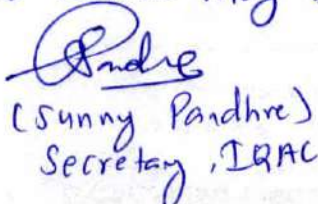 (Sunny Pandhre)
Secretary, IQAC